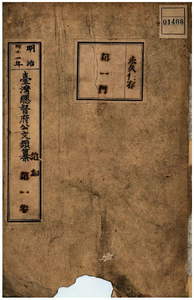 01408
永久保存
第一門
明治
四十一年
臺灣總督府公文類纂
第一卷